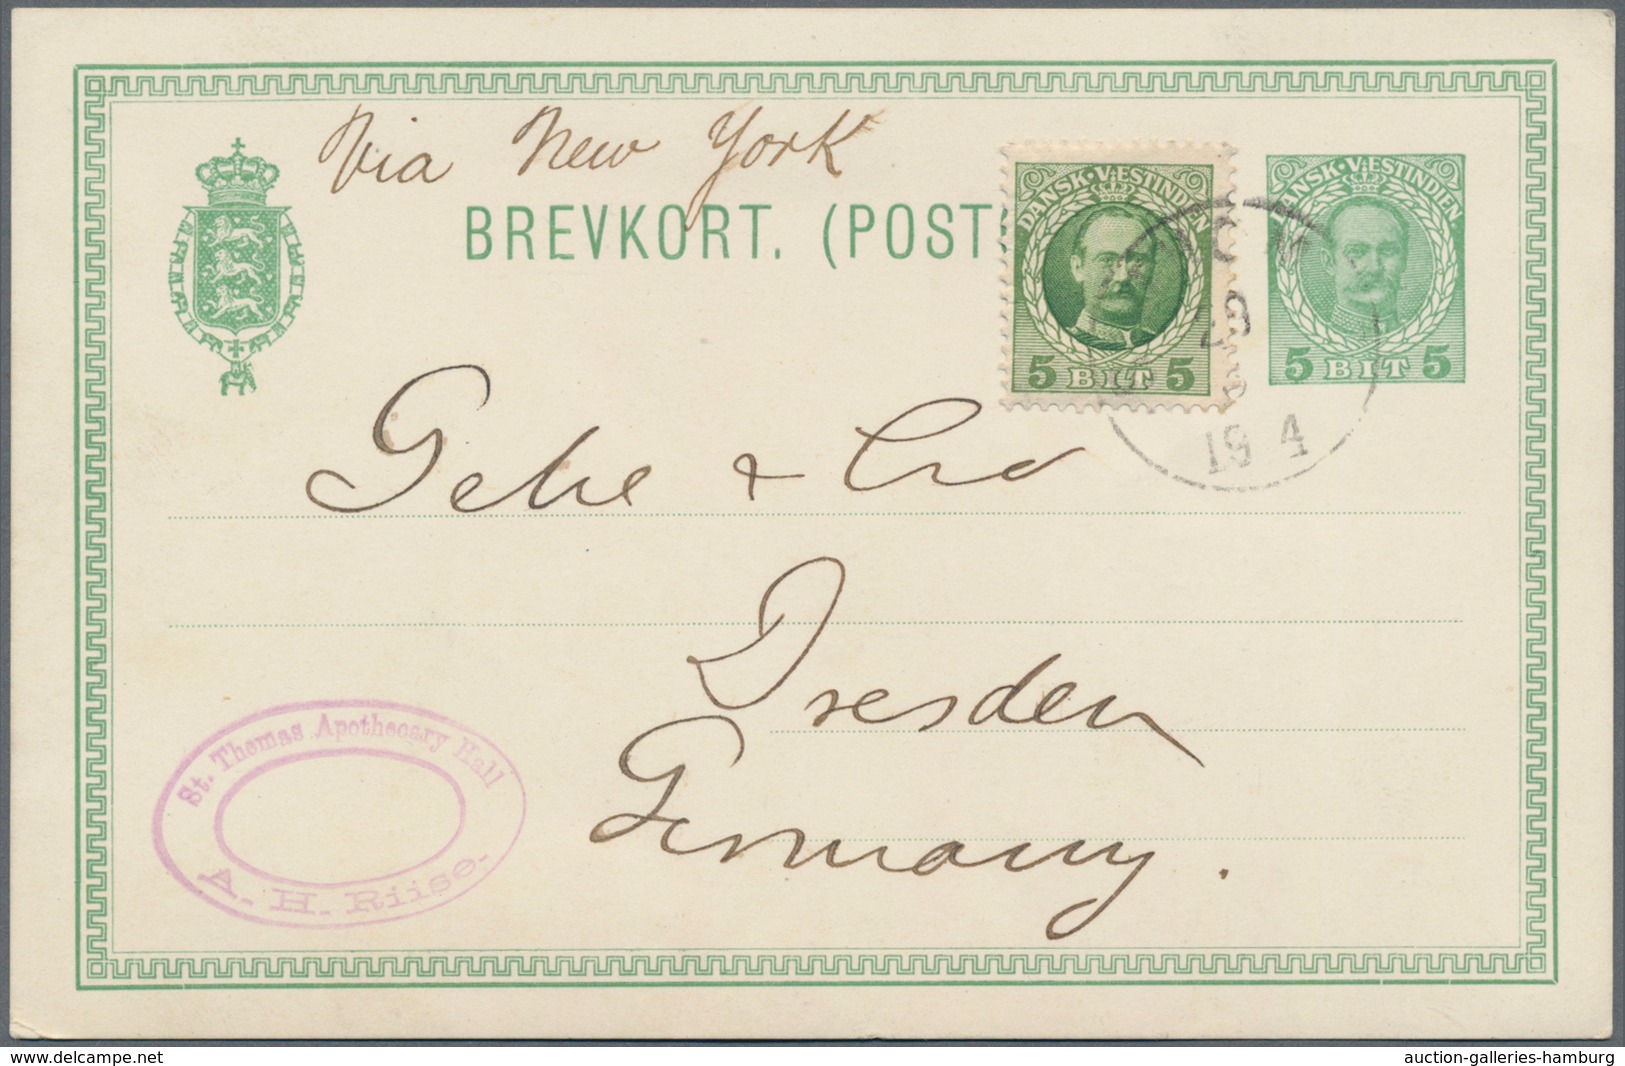 Via New York
BREVKORT. (POST
DANSK·VESTINDIEN
5 BIT 5
DANSK·VESTINDIEN
5 BIT 5
29
19 4
Gehe & Co
Dresden
Germany.
St. Thomas Apothecary Hall
A. H. Riise.
delcampe.net
auction-galleries-hamburg